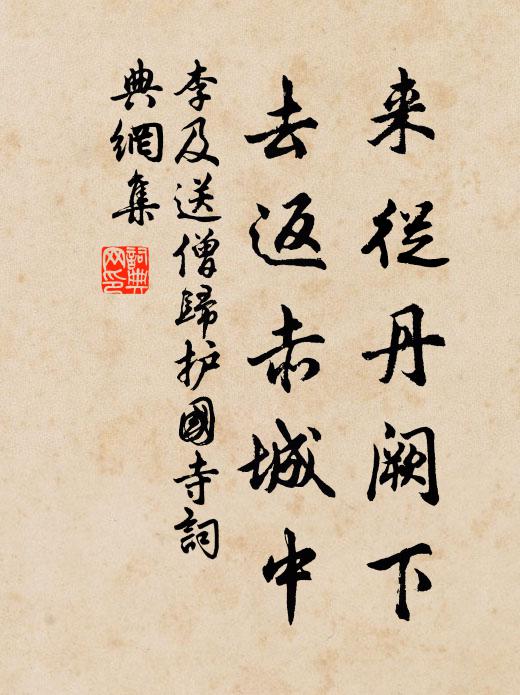 来從丹阙下
去返赤城中
李及送僧歸护國寺詞
典網集
詞典
网印